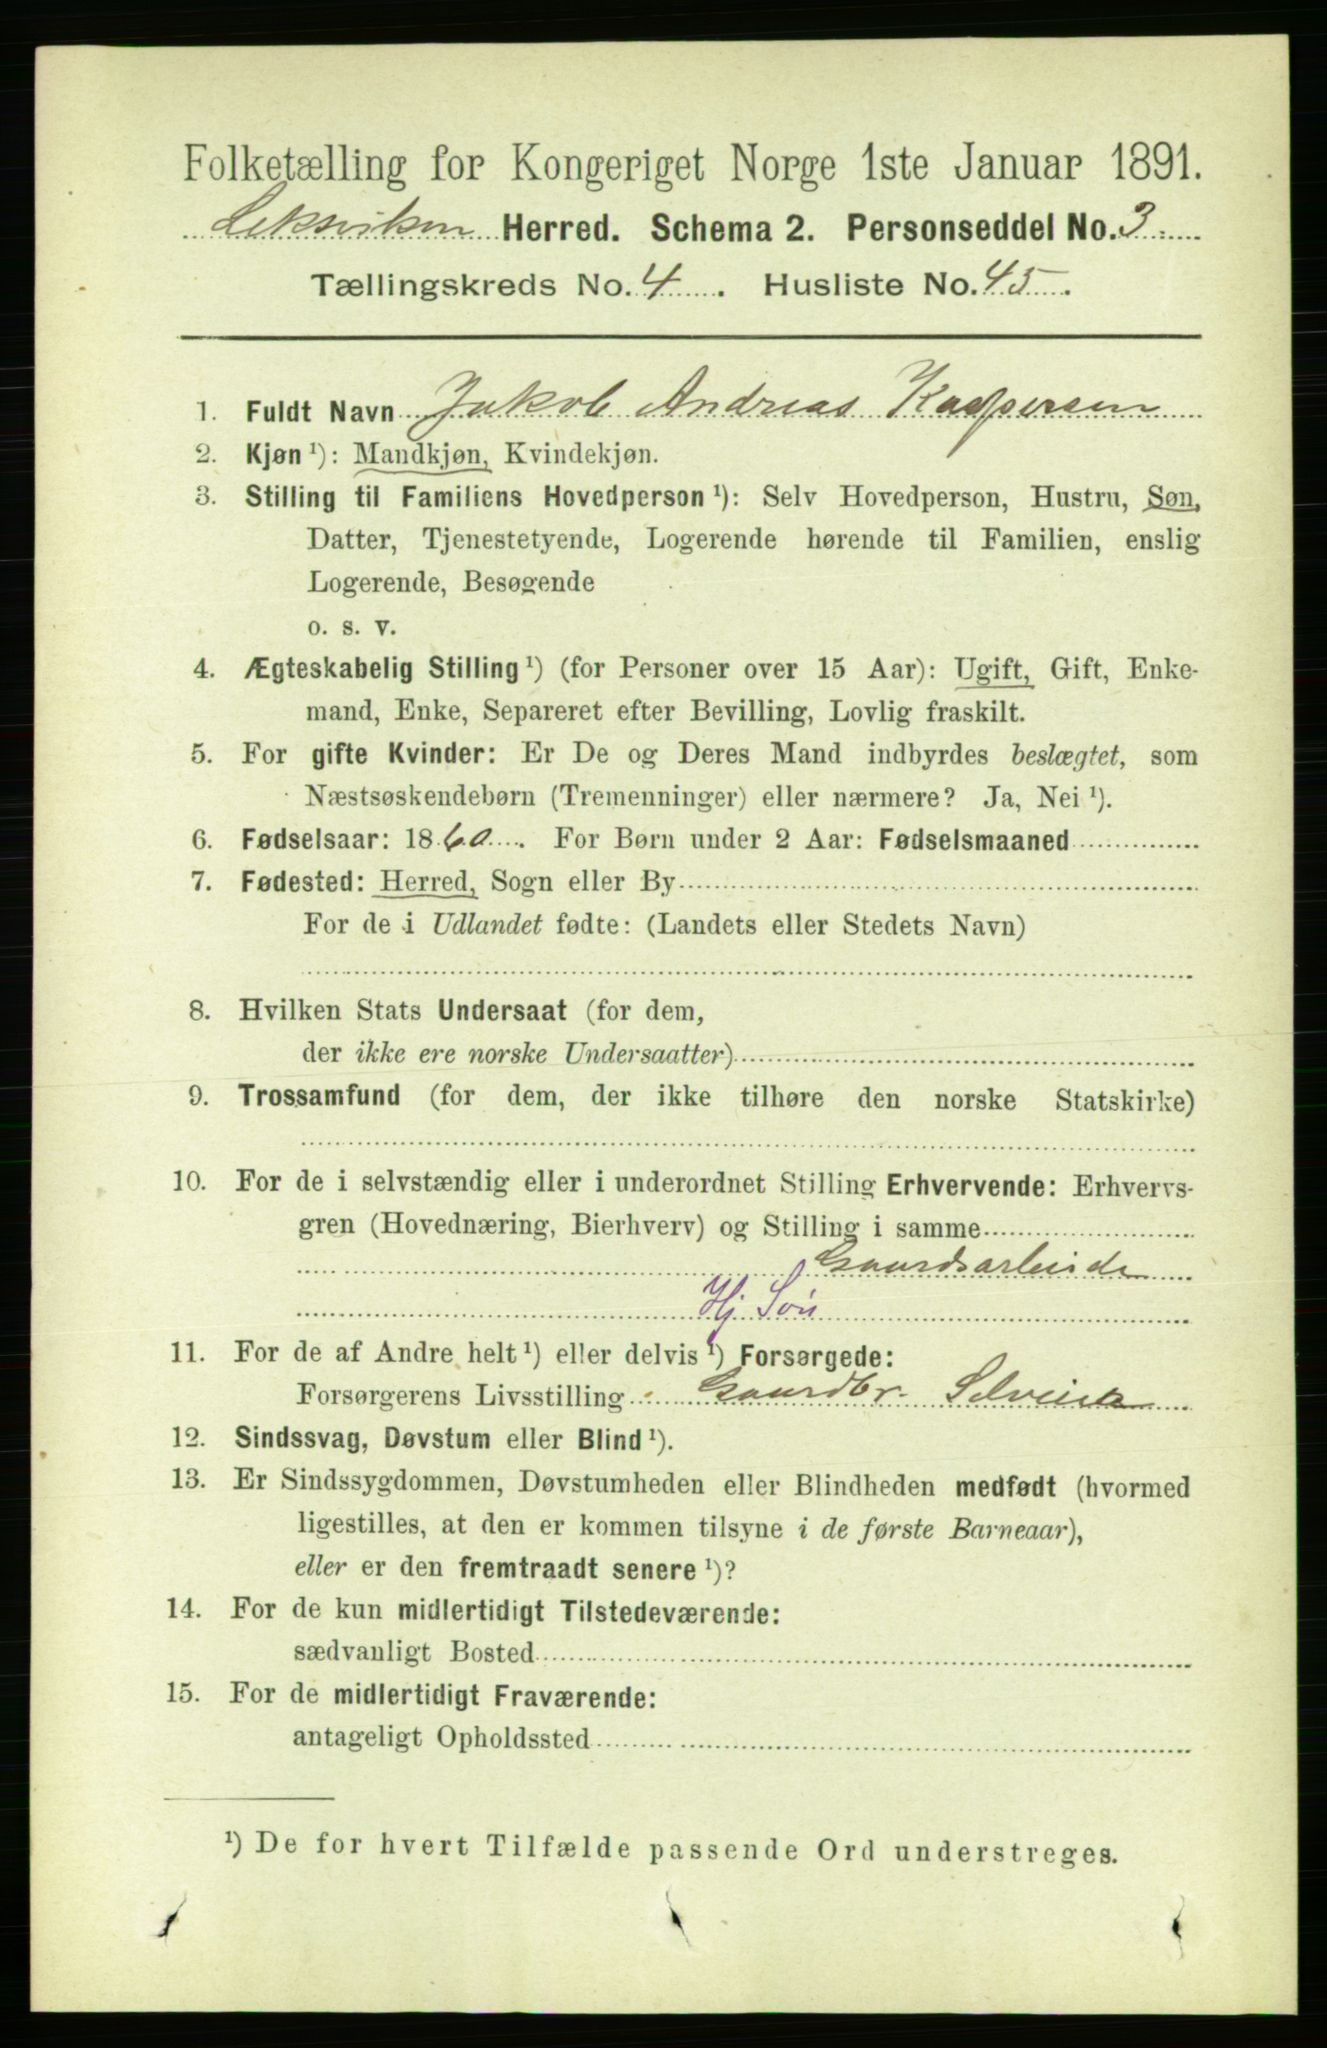 Folketælling for Kongeriget Norge 1ste Januar 1891.
Leksviken Herred. Schema 2. Personseddel No. 3.
Tællingskreds No. 4. Husliste No. 45.
1. Fuldt Navn Jakob Andreas Kaspersen
2. Kjøn ¹): Mandkjøn, Kvindekjøn.
3. Stilling til Familiens Hovedperson ¹): Selv Hovedperson, Hustru, Søn,
Datter, Tjenestetyende, Logerende hørende til Familien, enslig
Logerende, Besøgende
o. s. v.
4. Ægteskabelig Stilling ¹) (for Personer over 15 Aar): Ugift, Gift, Enke-
mand, Enke, Separeret efter Bevilling, Lovlig fraskilt.
5. For gifte Kvinder: Er De og Deres Mand indbyrdes beslægtet, som
Næstsøskendebørn (Tremenninger) eller nærmere? Ja, Nei ¹).
6. Fødselsaar: 1860. For Børn under 2 Aar: Fødselsmaaned
7. Fødested: Herred, Sogn eller By
For de i Udlandet fødte: (Landets eller Stedets Navn)
8. Hvilken Stats Undersaat (for dem,
der ikke ere norske Undersaatter)
9. Trossamfund (for dem, der ikke tilhøre den norske Statskirke)
10. For de i selvstændig eller i underordnet Stilling Erhvervende: Erhvervs-
gren (Hovednæring, Bierhverv) og Stilling i samme
Gaardsarbeide
Hj. Søn
11. For de af Andre helt ¹) eller delvis ¹) Forsørgede:
Forsørgerens Livsstilling Gaardbr. Selveier
12. Sindssvag, Døvstum eller Blind ¹).
13. Er Sindssygdommen, Døvstumheden eller Blindheden medfødt (hvormed
ligestilles, at den er kommen tilsyne i de første Barneaar),
eller er den fremtraadt senere ¹)?
14. For de kun midlertidigt Tilstedeværende:
sædvanligt Bosted
15. For de midlertidigt Fraværende:
antageligt Opholdssted
¹) De for hvert Tilfælde passende Ord understreges.